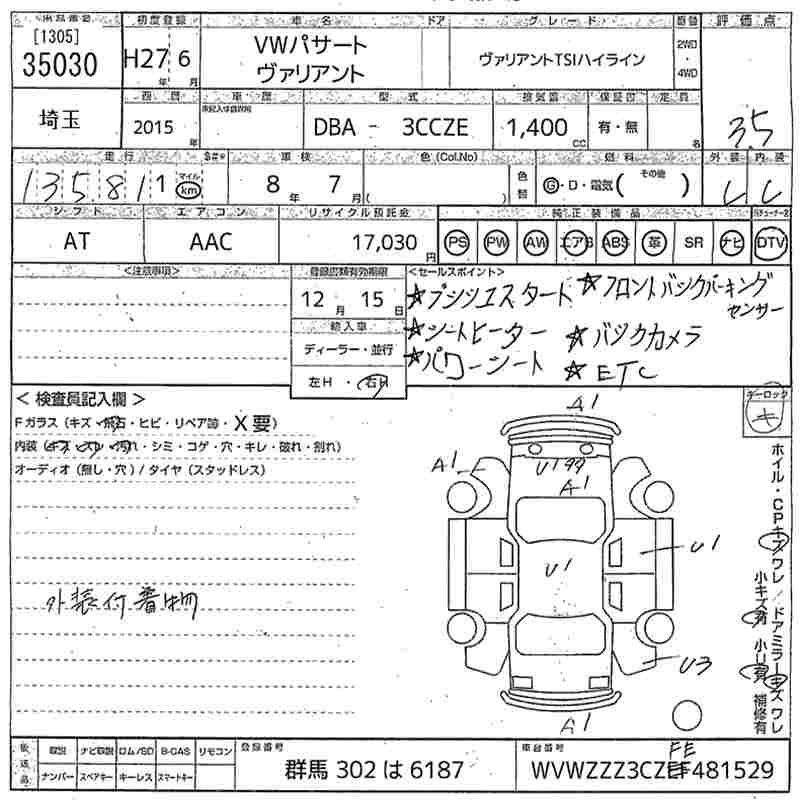 出品番号 初度登録 車名 ドア グレード 駆動 評価点
[1305]
35030
H27年 6月
VWパサート
ヴァリアント
ヴァリアントTSIハイライン
2WD
・
4WD
3.5
埼玉
西暦 車歴 型式 排気量 保証書 定員
2015年
DBA - 3CCZE
1,400 CC
有・無
名
走行 車検 色 (Col.No) 燃料 外装 内装
135,811 マイル km
8年 7月
( )
色替
G・D・電気( その他 )
C C
シフト エアコン リサイクル預託金 純正装備品
AT
AAC
17,030円
PS PW AW エアB ABS 革 SR ナビ DTV
<注意事項>
登録書類有効期限
12月 15日
輸入車
ディーラー・並行
左H・右H
<セールスポイント>
★プッシュスタート ★フロントバックパーキングセンサー
★シートヒーター ★バックカメラ
★パワーシート ★ETC
< 検査員記入欄 >
Fガラス (キズ・飛石・ヒビ・リペア跡・X要)
内装 (キズ・スレ・汚れ・シミ・コゲ・穴・キレ・破れ・割れ)
オーディオ (無し・穴) / タイヤ (スタッドレス)
外装付着物
キーロック
キ
A1
A1
U1 99
A1
U1
U1
U3
A1
ホイル・CPキズワレ/ドアミラーキズワレ
小キズ有 小U有 補修有
後送品
取説 ナビ取説 ロム/SD B-CAS リモコン
ナンバー スペアキー キーレス スマートキー
登録番号
群馬 302 は 6187
車台番号
FE
WVWZZZ3CZEF481529